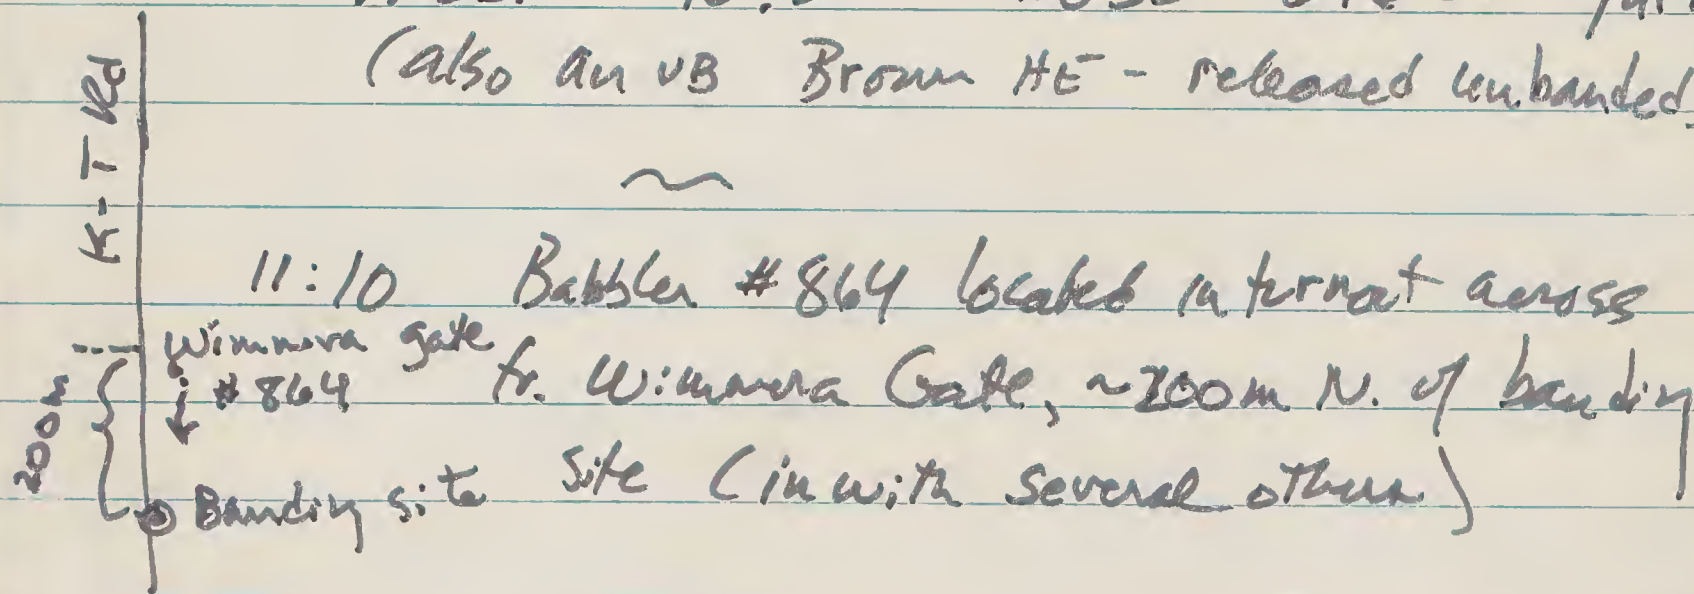 (also an UB Brown HE - released unbanded,
~
K-T Rd
11:10 Babbler #864 located in turnout across
fr. Wimmera Gate, ~200m N. of banding
site (in with several others)
Wimmera gate
#864
200m
Banding site